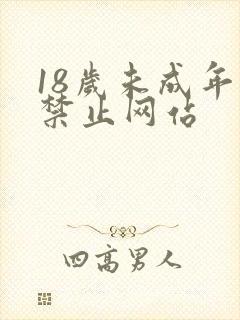 18歲未成年
禁止网佔
四高男人